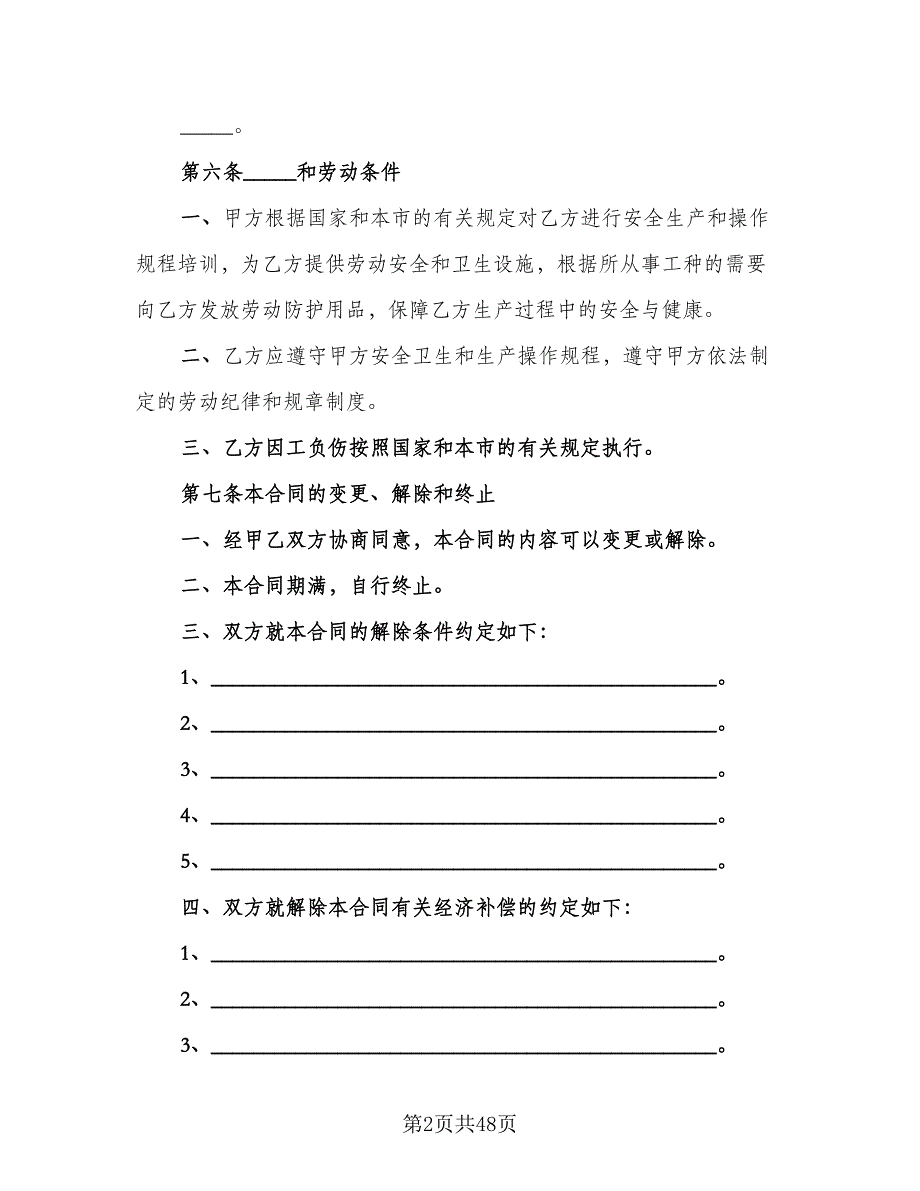 _____。
第六条_____和劳动条件
一、甲方根据国家和本市的有关规定对乙方进行安全生产和操作
规程培训，为乙方提供劳动安全和卫生设施，根据所从事工种的需要
向乙方发放劳动防护用品，保障乙方生产过程中的安全与健康。
二、乙方应遵守甲方安全卫生和生产操作规程，遵守甲方依法制
定的劳动纪律和规章制度。
三、乙方因工负伤按照国家和本市的有关规定执行。
第七条本合同的变更、解除和终止
一、经甲乙双方协商同意，本合同的内容可以变更或解除。
二、本合同期满，自行终止。
三、双方就本合同的解除条件约定如下：
1、________________________________________________。
2、________________________________________________。
3、________________________________________________。
4、________________________________________________。
5、________________________________________________。
四、双方就解除本合同有关经济补偿的约定如下：
1、________________________________________________。
2、________________________________________________。
3、________________________________________________。
第2页共48页